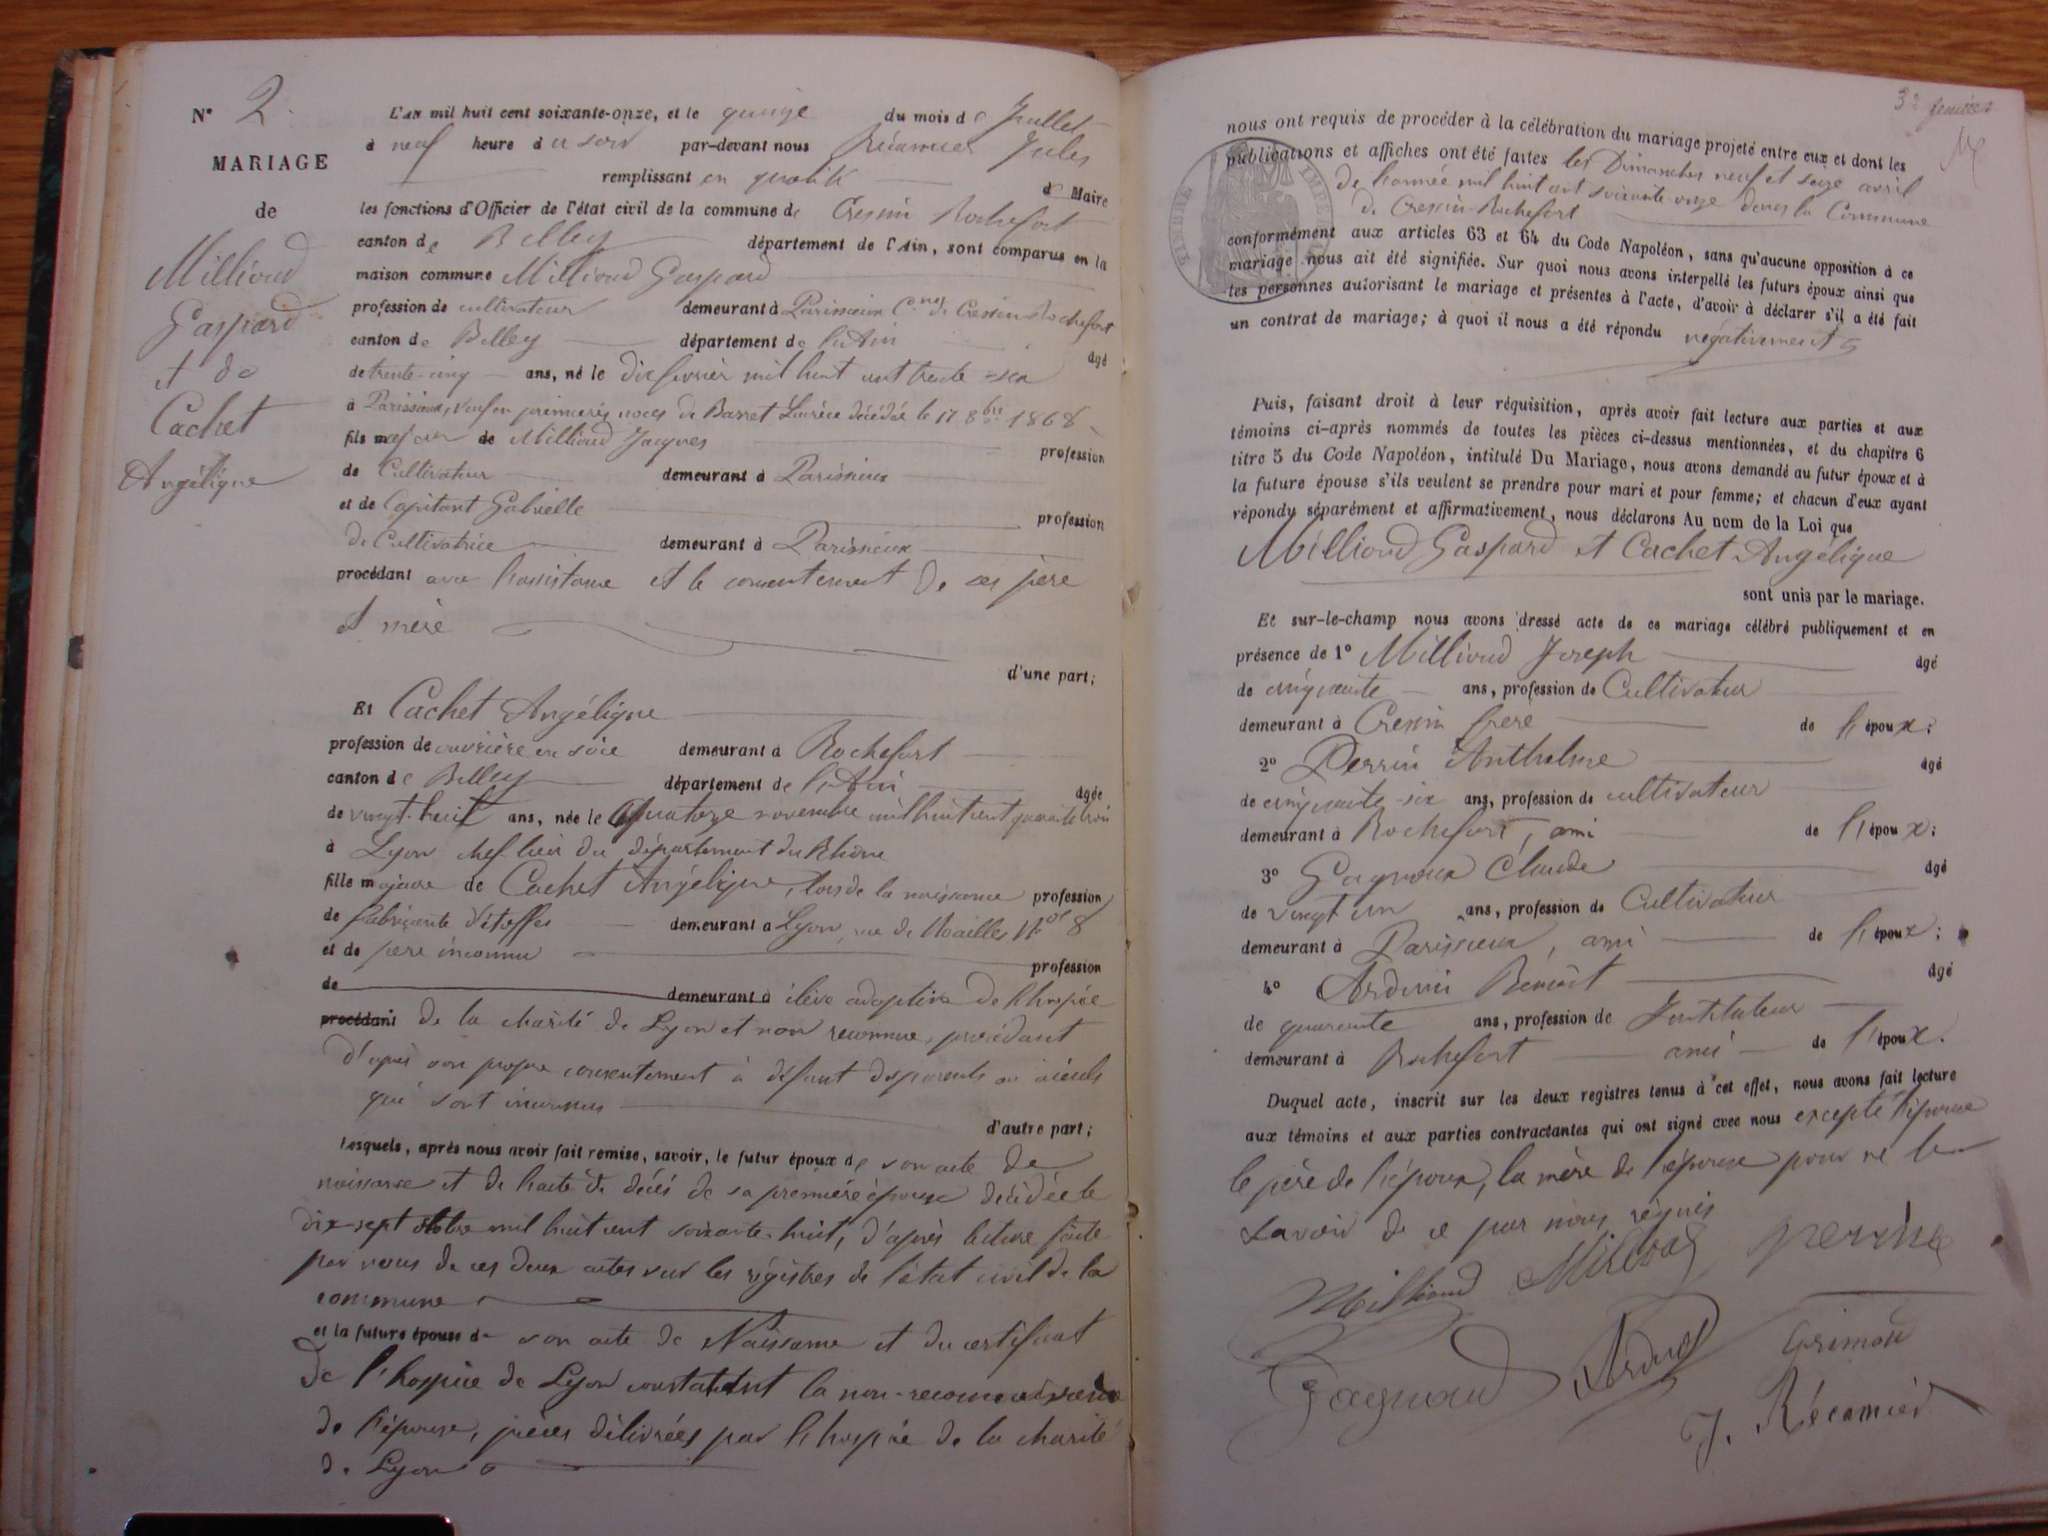 N° 2.
MARIAGE
de
Millioud
Gaspard
et de
Cachet
Angélique
L'an mil huit cent soixante-onze, et le quinze du mois de Juillet
à neuf heure du soir par-devant nous Récamier Jules
remplissant en qualité de Maire
les fonctions d'Officier de l'état civil de la commune de Cressin Rochefort
canton de Belley département de l'Ain, sont comparus en la
maison commune Millioud Gaspard
profession de cultivateur demeurant à Parissieux Cne de Cressin Rochefort
canton de Belley département de l'Ain âgé
de trente-cinq ans, né le dix février mil huit cent trente-six
à Parissieux, veuf en premières noces de Barret Lucrèce décédée le 17 8bre 1868
fils majeur de Millioud Jacques profession
de Cultivateur demeurant à Parissieux
et de Capitant Gabrielle profession
de Cultivatrice demeurant à Parissieux
procédant avec l'assistance et le consentement de ses père
et mère
d'une part;
Et Cachet Angélique
profession de ouvrière en soie demeurant à Rochefort
canton de Belley département de l'Ain âgée
de vingt-huit ans, née le quatorze novembre mil huit cent quarante trois
à Lyon chef-lieu du département du Rhône
fille majeure de Cachet Angélique, lors de la naissance profession
de fabricante d'étoffes demeurant à Lyon, rue de Noailles N° 8
et de père inconnu profession
de demeurant à élève adoptive de l'hospice
procédant de la charité de Lyon et non reconnue, procédant
d'après son propre consentement à défaut des parents ou aïeuls
qui sont inconnus
d'autre part;
Lesquels, après nous avoir fait remise, savoir, le futur époux de son acte de
naissance et de l'acte de décès de sa première épouse décédée le
dix-sept octobre mil huit cent soixante-huit, d'après lecture faite
par nous de ces deux actes sur les régistres de l'état civil de la
commune
et la future épouse de son acte de Naissance et du certificat
de l'hospice de Lyon constatant la non-reconnaissance
de l'épouse, pièces délivrées par l'hospice de la charité
de Lyon
nous ont requis de procéder à la célébration du mariage projeté entre eux et dont les
publications et affiches ont été faites les Dimanches neuf et seize avril
de l'année mil huit cent soixante-onze dans la Commune
de Cressin-Rochefort
conformément aux articles 63 et 64 du Code Napoléon, sans qu'aucune opposition à ce
mariage nous ait été signifiée. Sur quoi nous avons interpellé les futurs époux ainsi que
les personnes autorisant le mariage et présentes à l'acte, d'avoir à déclarer s'il a été fait
un contrat de mariage; à quoi il nous a été répondu négativement
Puis, faisant droit à leur réquisition, après avoir fait lecture aux parties et aux
témoins ci-après nommés de toutes les pièces ci-dessus mentionnées, et du chapitre 6
titre 5 du Code Napoléon, intitulé Du Mariage, nous avons demandé au futur époux et à
la future épouse s'ils veulent se prendre pour mari et pour femme; et chacun d'eux ayant
répondu séparément et affirmativement, nous déclarons Au nom de la Loi que
Millioud Gaspard et Cachet Angélique
sont unis par le mariage.
Et sur-le-champ nous avons dressé acte de ce mariage célébré publiquement et en
présence de 1° Millioud Joseph âgé
de cinquante ans, profession de Cultivateur
demeurant à Cressin frère de l'époux;
2° Perrin Anthelme âgé
de cinquante-six ans, profession de cultivateur
demeurant à Rochefort, ami de l'époux;
3° Gagnoux Claude âgé
de vingt un ans, profession de Cultivateur
demeurant à Parissieux, ami de l'époux;
4° Benoit âgé
de quarante ans, profession de Instituteur
demeurant à Rochefort ami de l'époux.
Duquel acte, inscrit sur les deux registres tenus à cet effet, nous avons fait lecture
aux témoins et aux parties contractantes qui ont signé avec nous excepté l'épouse
le père de l'époux, la mère de l'époux pour ne le
savoir de ce par nous réquis
Millioud Perrin
Grimon
J. Récamier